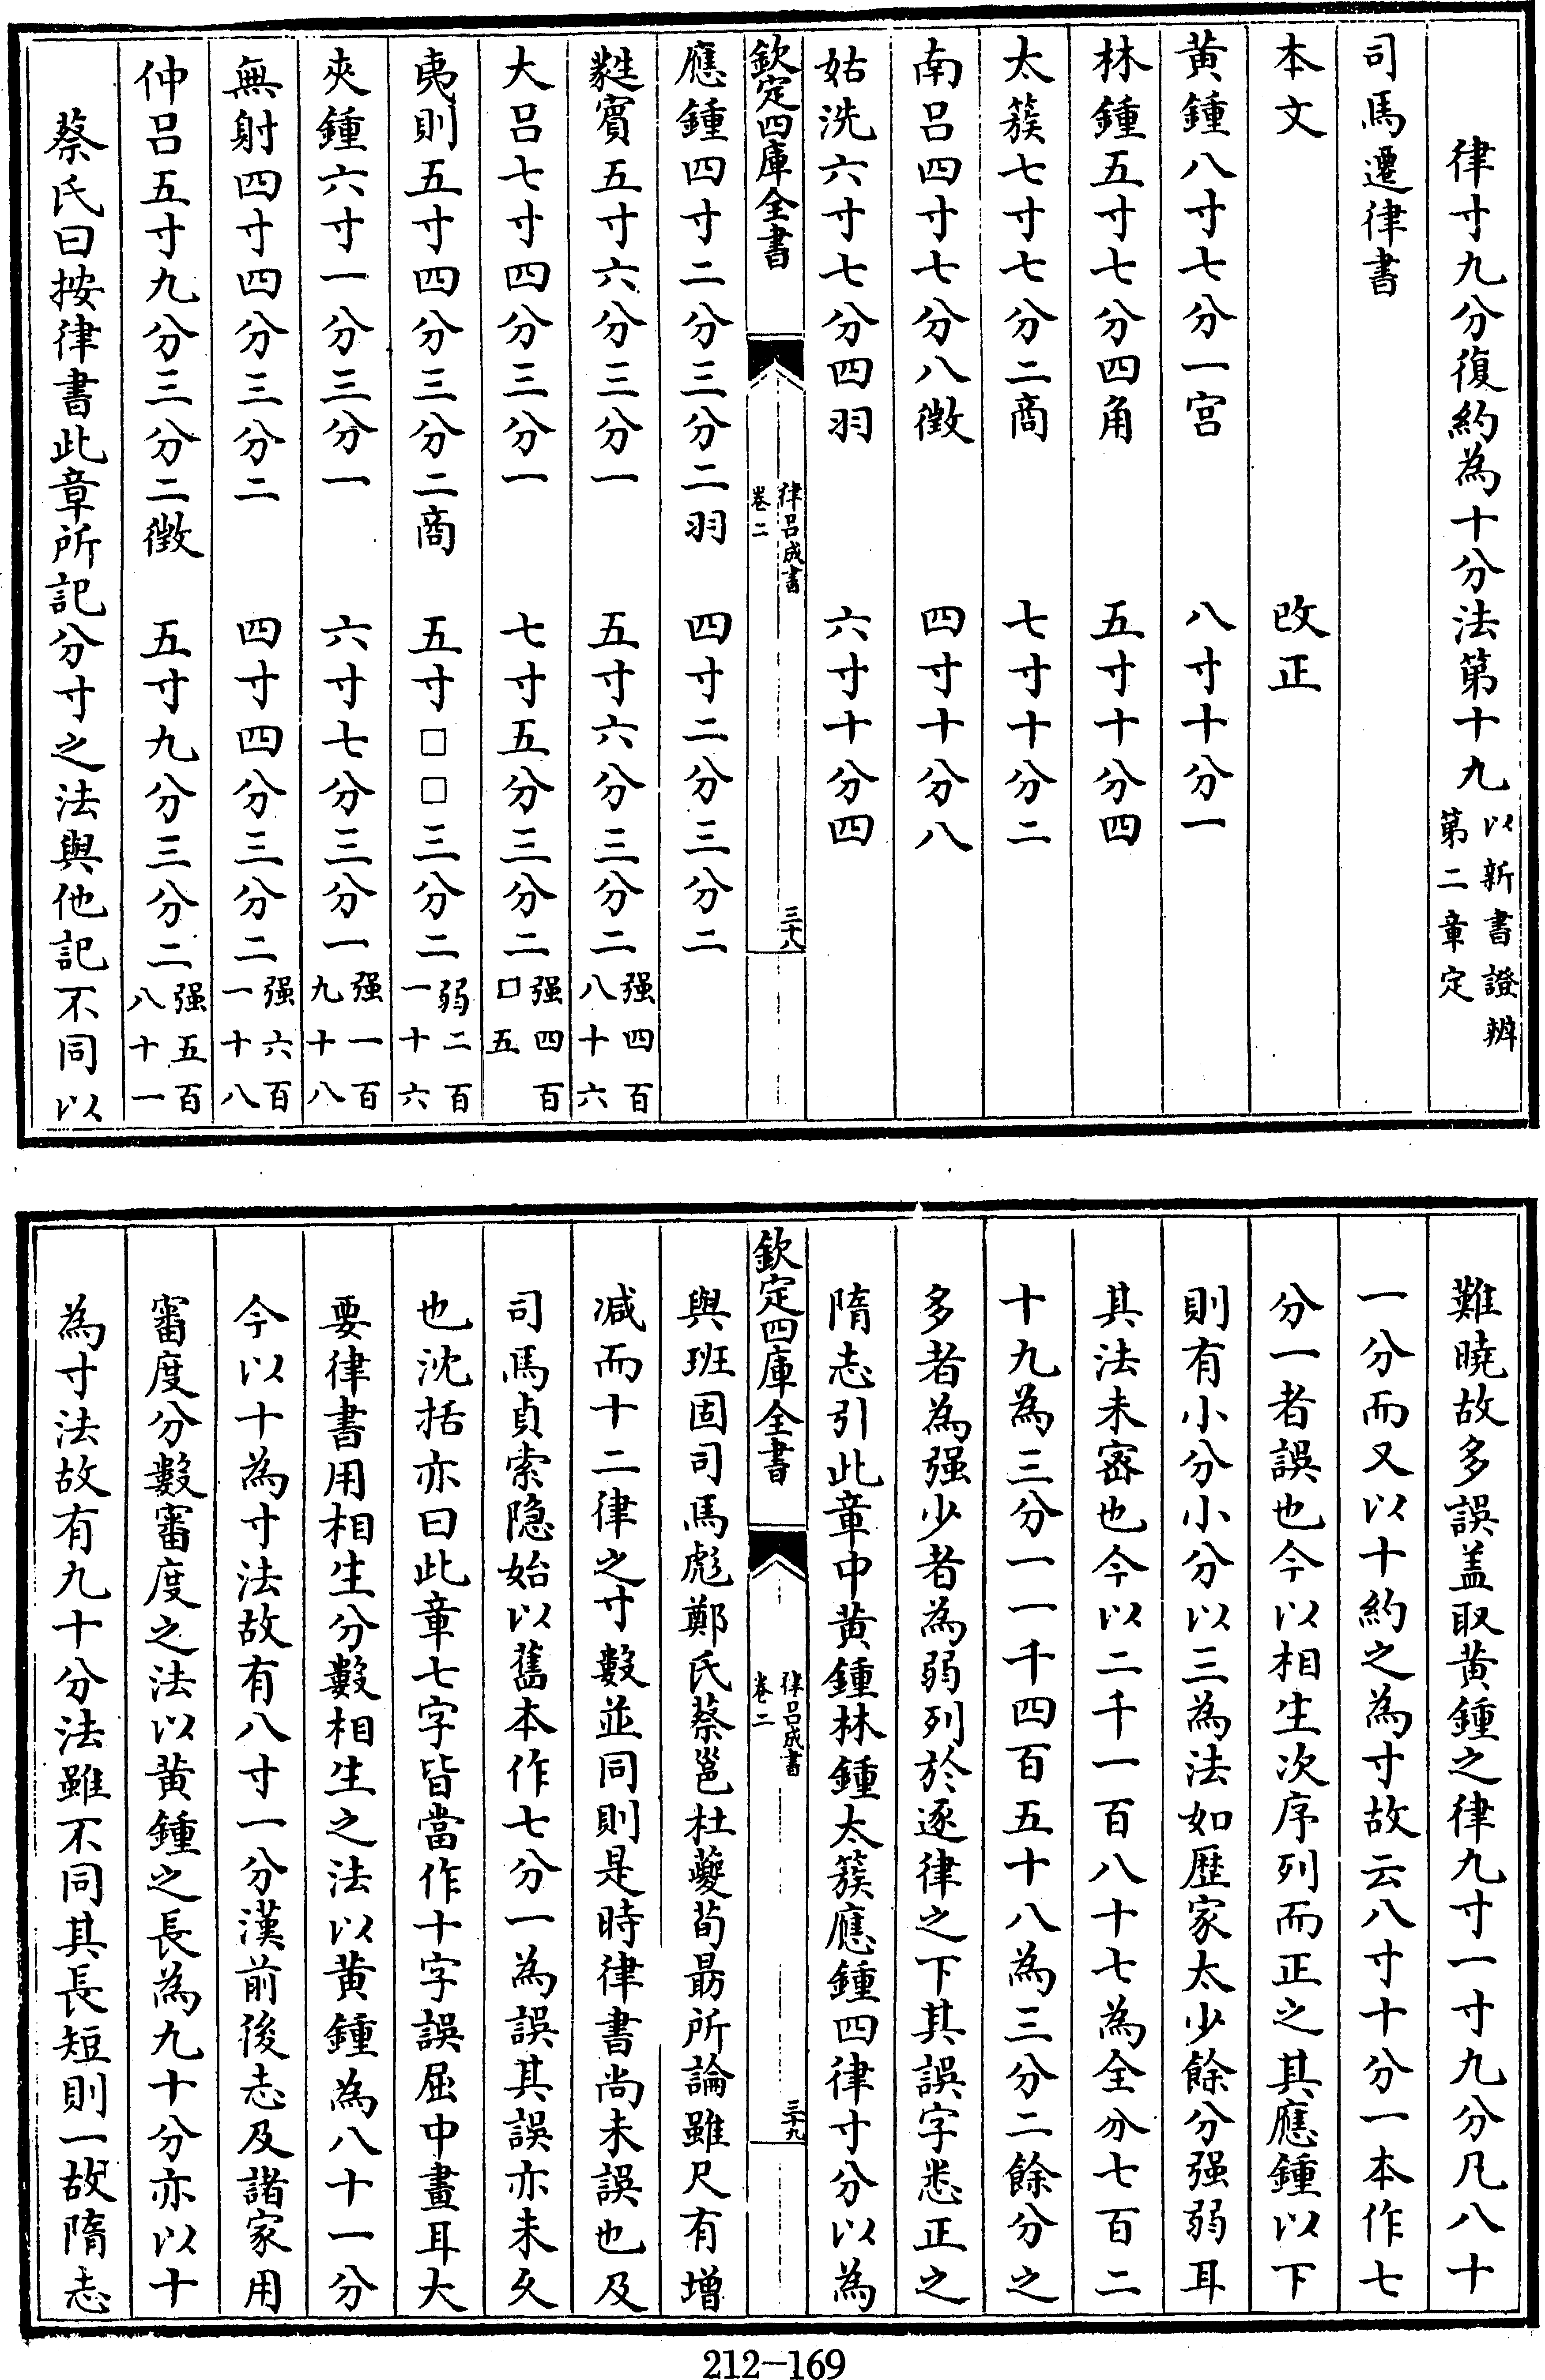 律寸九分復約為十分法第十九以新書證辨第二章定
司馬遷律書
本文　改正
黃鍾八寸七分一宮　八寸十分一
林鍾五寸七分四角　五寸十分四
太簇七寸七分二商　七寸十分二
南呂四寸七分八徵　四寸十分八
姑洗六寸七分四羽　六寸十分四
欽定四庫全書　律呂成書卷二　三十八
應鍾四寸二分三分二羽　四寸二分三分二
蕤賓五寸六分三分一　五寸六分三分二强四百八十六
大呂七寸四分三分一　七寸五分三分二强四百□五
夷則五寸四分三分二商　五寸□□三分二弱二百一十六
夾鍾六寸一分三分一　六寸七分三分一强一百九十八
無射四寸四分三分二　四寸四分三分二强六百一十八
仲呂五寸九分三分二徵　五寸九分三分二强五百八十一
蔡氏曰按律書此章所記分寸之法與他記不同以
難曉故多誤盖取黃鍾之律九寸一寸九分凡八十
一分而又以十約之為寸故云八寸十分一本作七
分一者誤也今以相生次序列而正之其應鍾以下
則有小分小分以三為法如歴家太少餘分强弱耳
其法未宻也今以二千一百八十七為全分七百二
十九為三分一一千四百五十八為三分二餘分之
多者為强少者為弱列於逐律之下其誤字悉正之
隋志引此章中黃鍾林鍾太簇應鍾四律寸分以為
欽定四庫全書　律呂成書卷二　三十九
與班固司馬彪鄭氏蔡邕杜夔荀朂所論雖尺有增
減而十二律之寸數並同則是時律書尚未誤也及
司馬貞索隐始以舊本作七分一為誤其誤亦未乆
也沈括亦曰此章七字皆當作十字誤屈中畫耳大
要律書用相生分數相生之法以黃鍾為八十一分
今以十為寸法故有八寸一分漢前後志及諸家用
審度分數審度之法以黃鍾之長為九十分亦以十
為寸法故有九十分法雖不同其長短則一故隋志
212-169